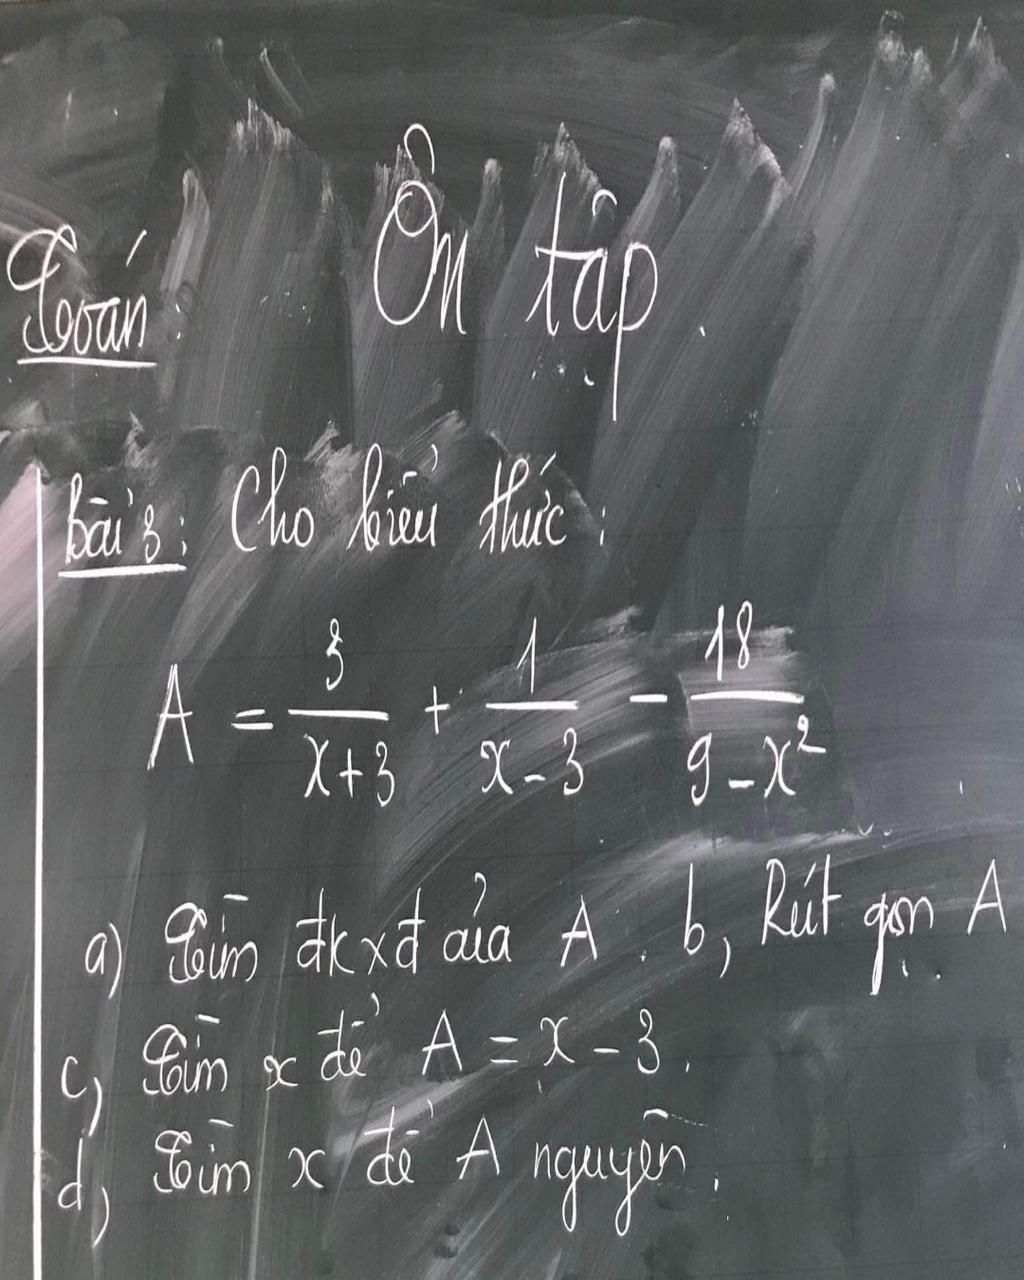 Toán: Ôn tập
Bài 3: Cho biểu thức:
A = 3/(x+3) + 1/(x-3) - 18/(9-x²)
a) Tìm đkxđ của A. b, Rút gọn A
c, Tìm x để A = x - 3.
d, Tìm x để A nguyên.